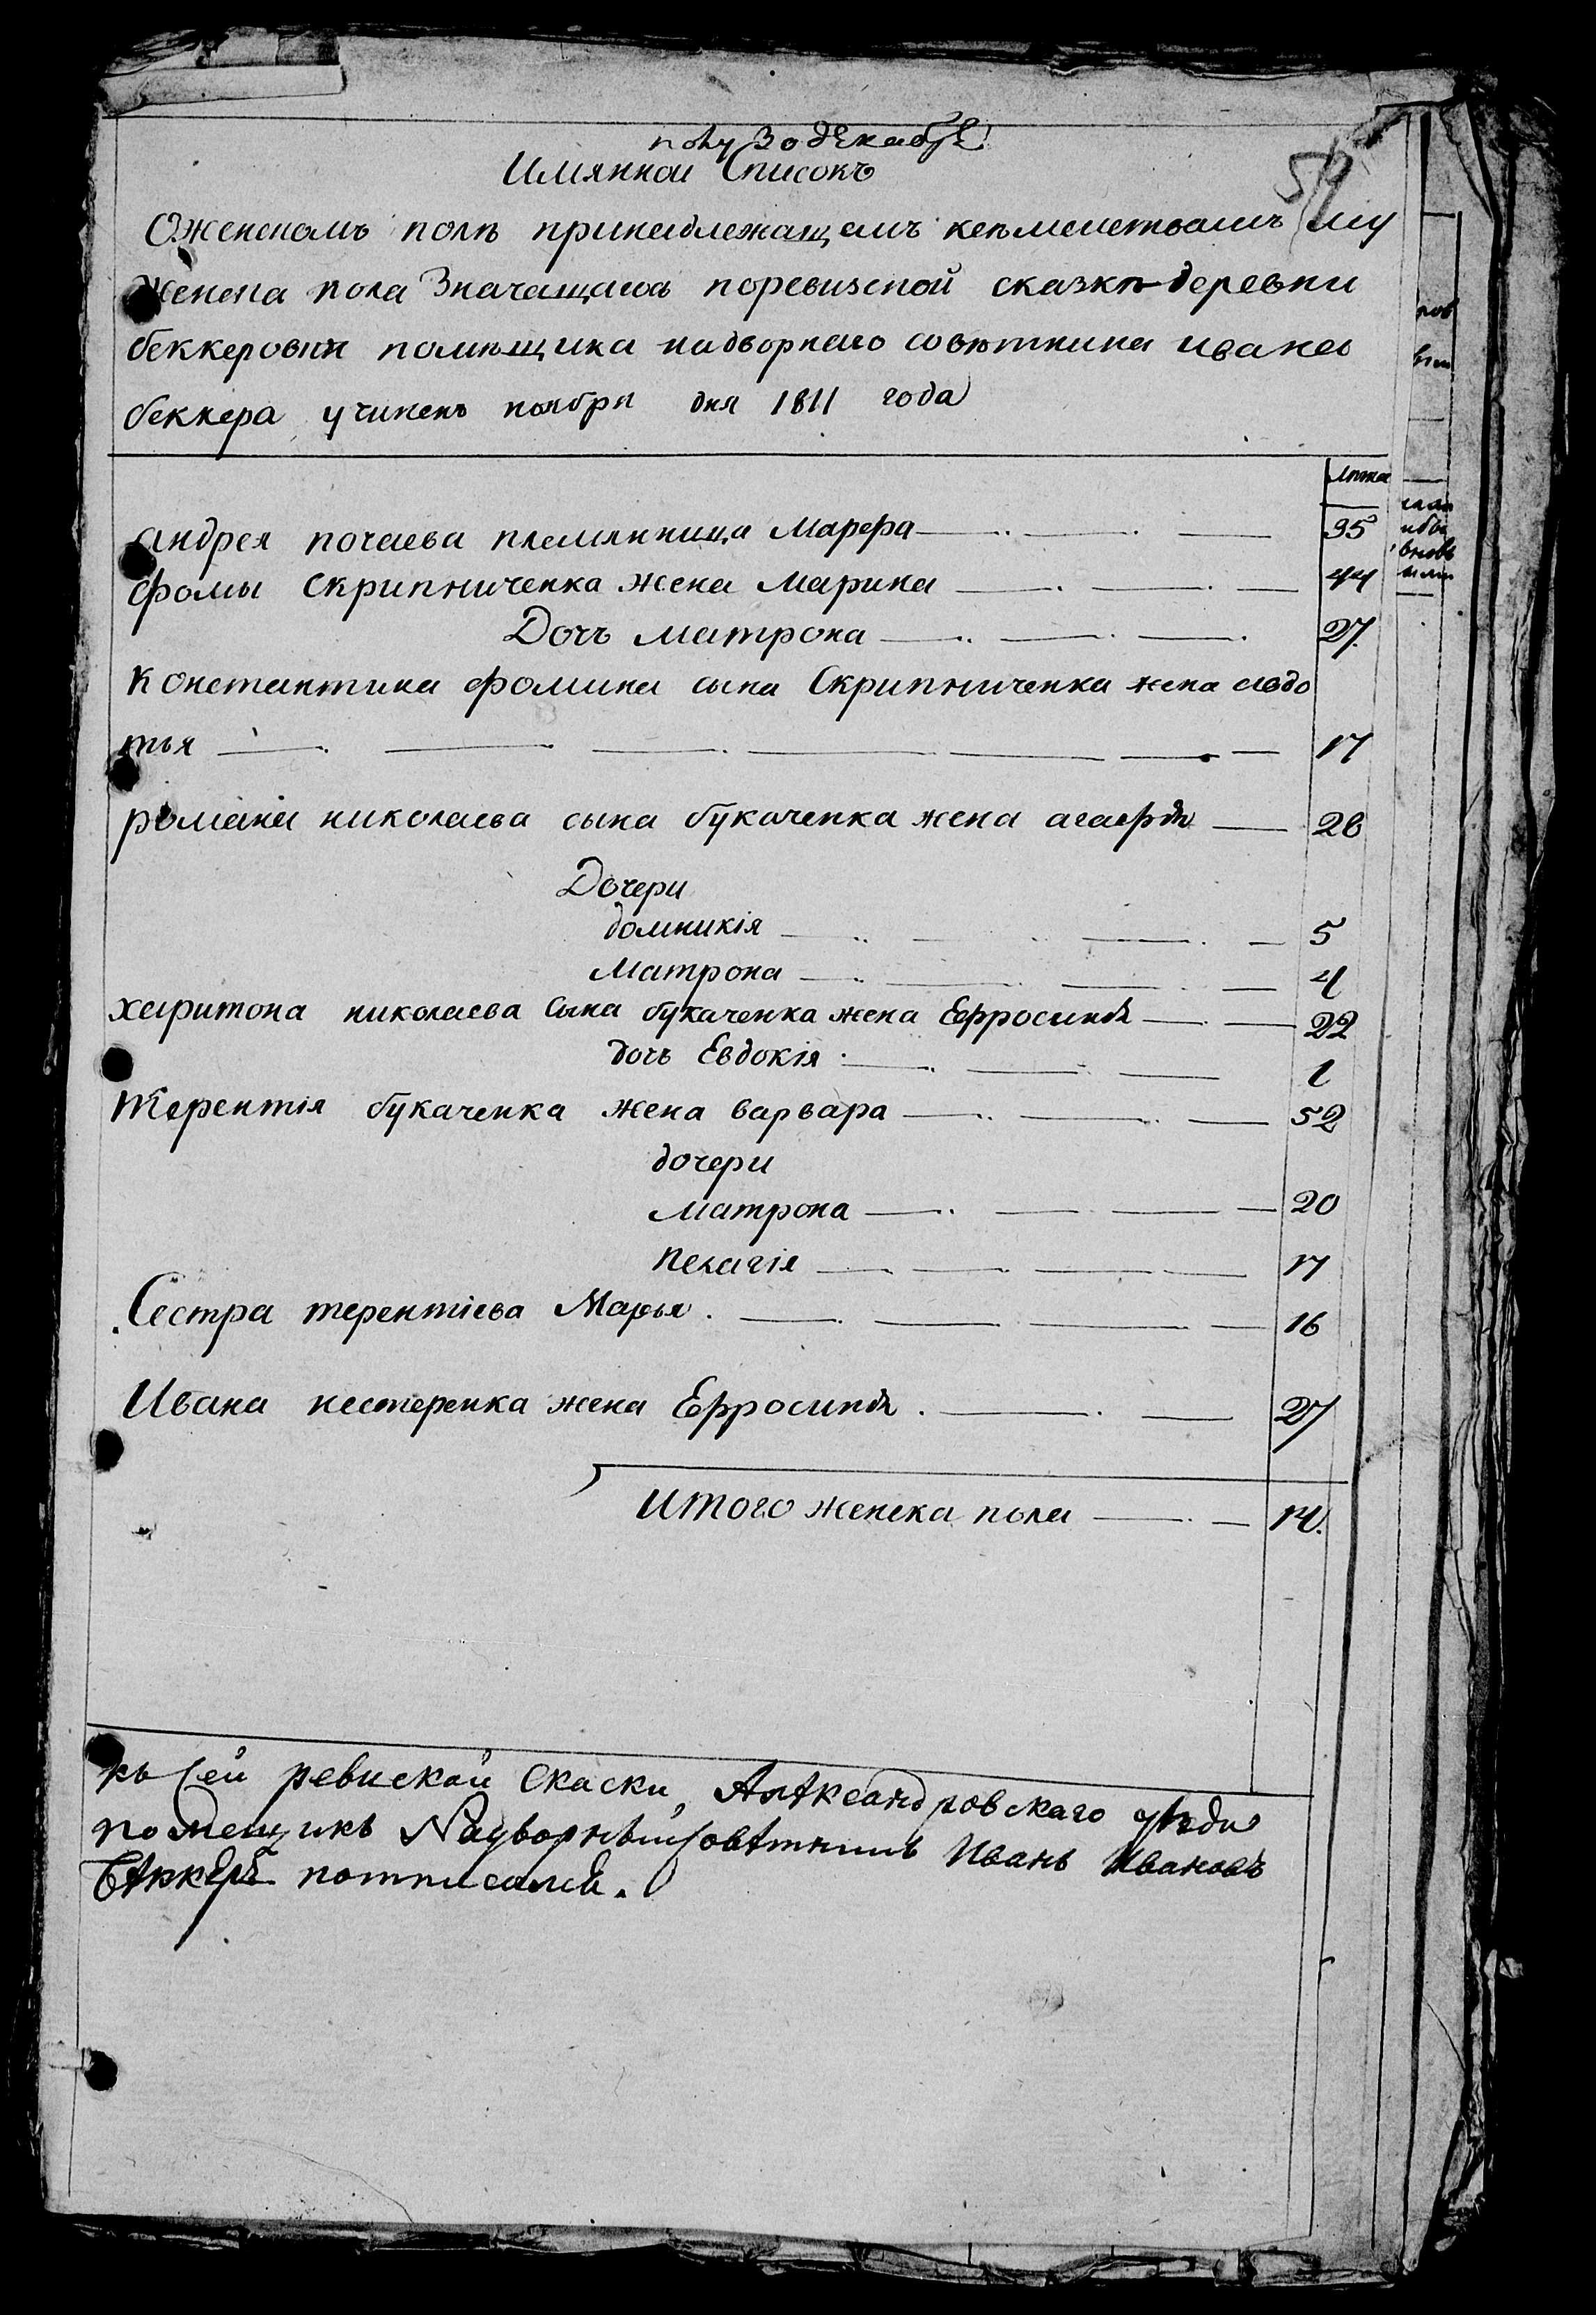 полу 30 декабре
Имянной Списокъ
59
О женскомъ полѣ принадлежащемъ къ семействамъ му
женска пола Значащаяся по ревизской сказкѣ деревни
беккеровки помѣщика надворнаго совѣтника ивана
беккера учиненъ ноября дня 1811 года
лѣта
андрея почаева племянница Марфа 35
фомы Скрипниченка жена Марина 44
Дочъ матрона 27
Константина фомина сына Скрипниченка жена авдо
тья 17
романа николаева сына букаченка жена агафія 28
Дочери
домникія 5
Матрона 4
харитона николаева Сына букаченка жена Ефросинія 22
дочь Евдокія 1
Терентія букаченка жена варвара 52
дочери
матрона 20
пелагія 17
Сестра терентіева Марья 16
Ивана нестеренка жена Ефросинія 27
Итого женска пола 14
къ сей ревиской Скаски Алѣксандровскаго уѣзда
помещикъ Надворный совѣтникъ Иванъ Ивановъ
Бѣккеръ потписался.